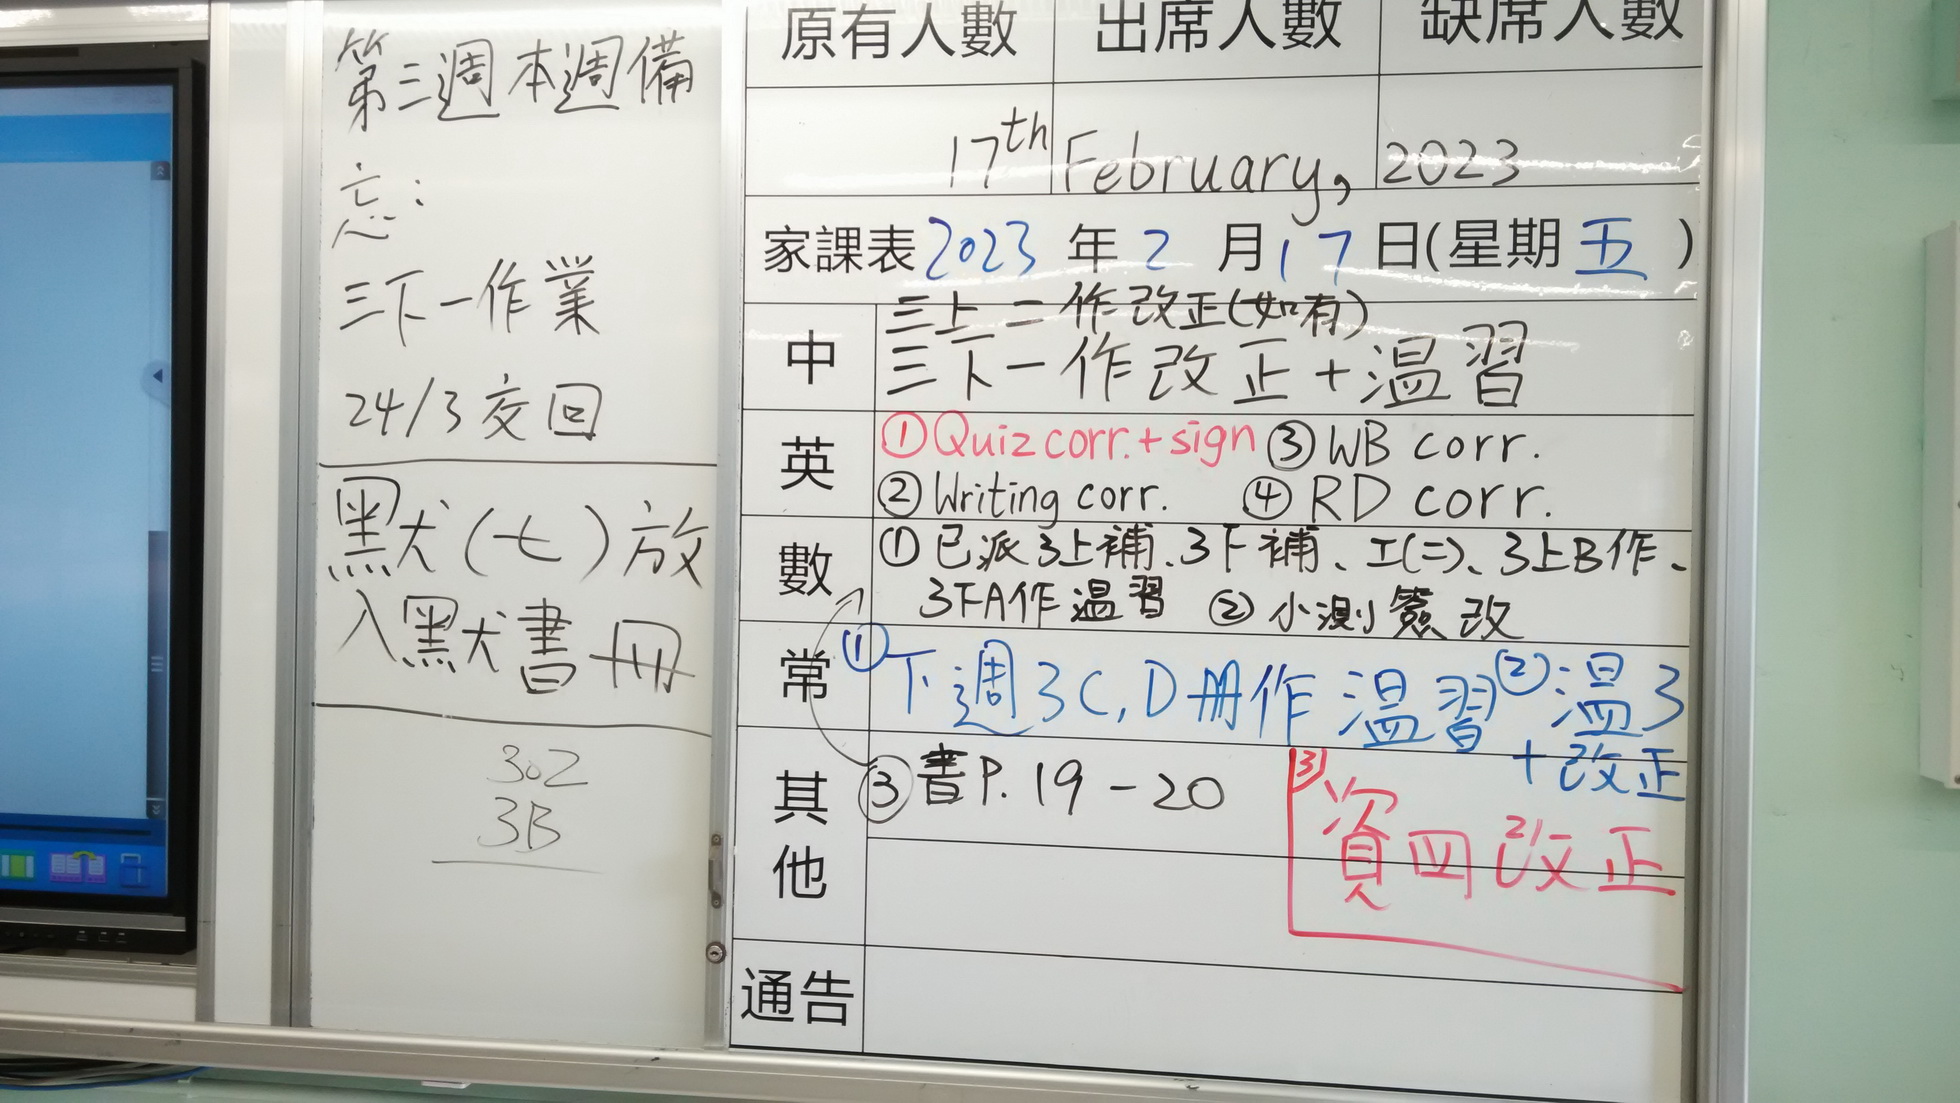 第三週本週備
忘：
三下一作業
24/3交回
默(七)放
入默書冊
302
3B
原有人數 出席人數 缺席人數
17th February, 2023
家課表 2023 年 2 月 17 日(星期 五 )
中
三上二作改正(如有)
三下一作改正+温習
英
①Quiz corr.+sign ③WB corr.
②Writing corr. ④RD corr.
數
①已派3上補、3下補、工(二)、3上B作、
3下A作温習 ②小測簽改
③書P.19-20
常
①下週3C,D冊作温習 ②温3
+改正
③資四改正
其他
通告